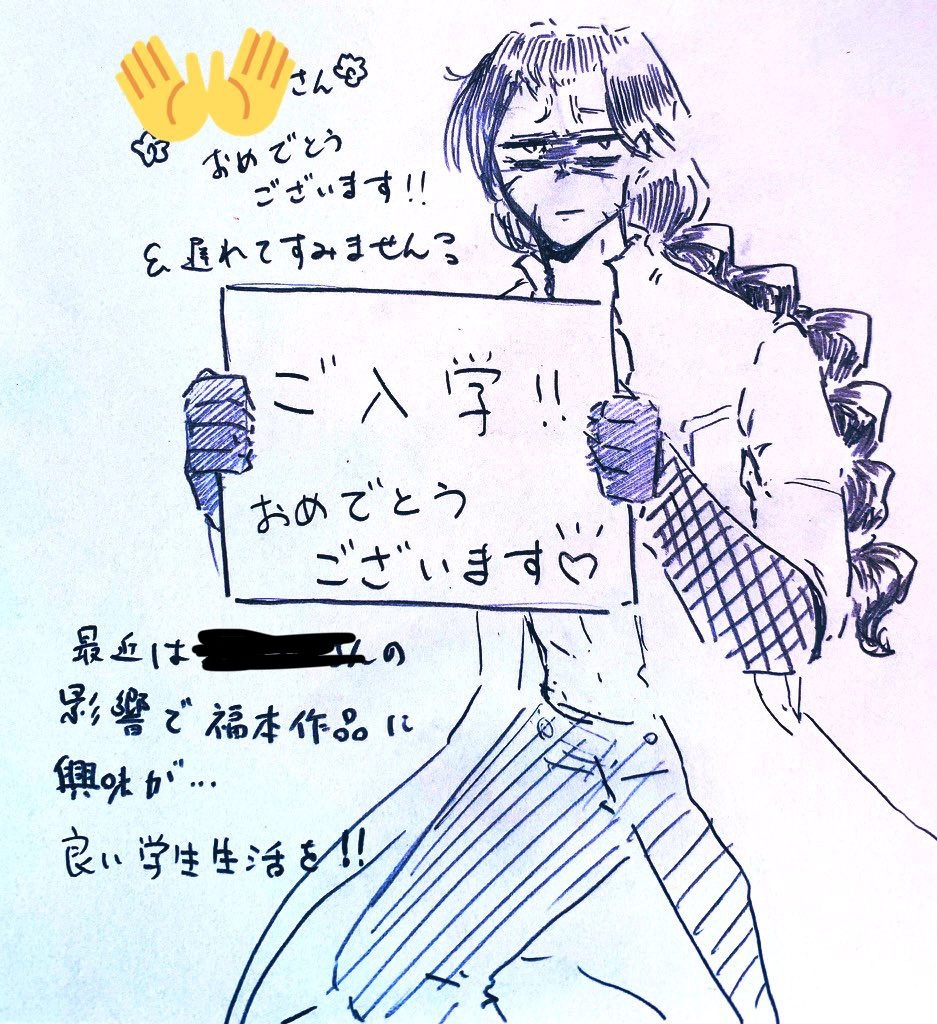 さん
おめでとう
ございます!!
& 遅れてすみません
ご入学!!
おめでとう
ございます♡
最近は さんの
影響で福本作品に
興味が…
良い学生生活を!!